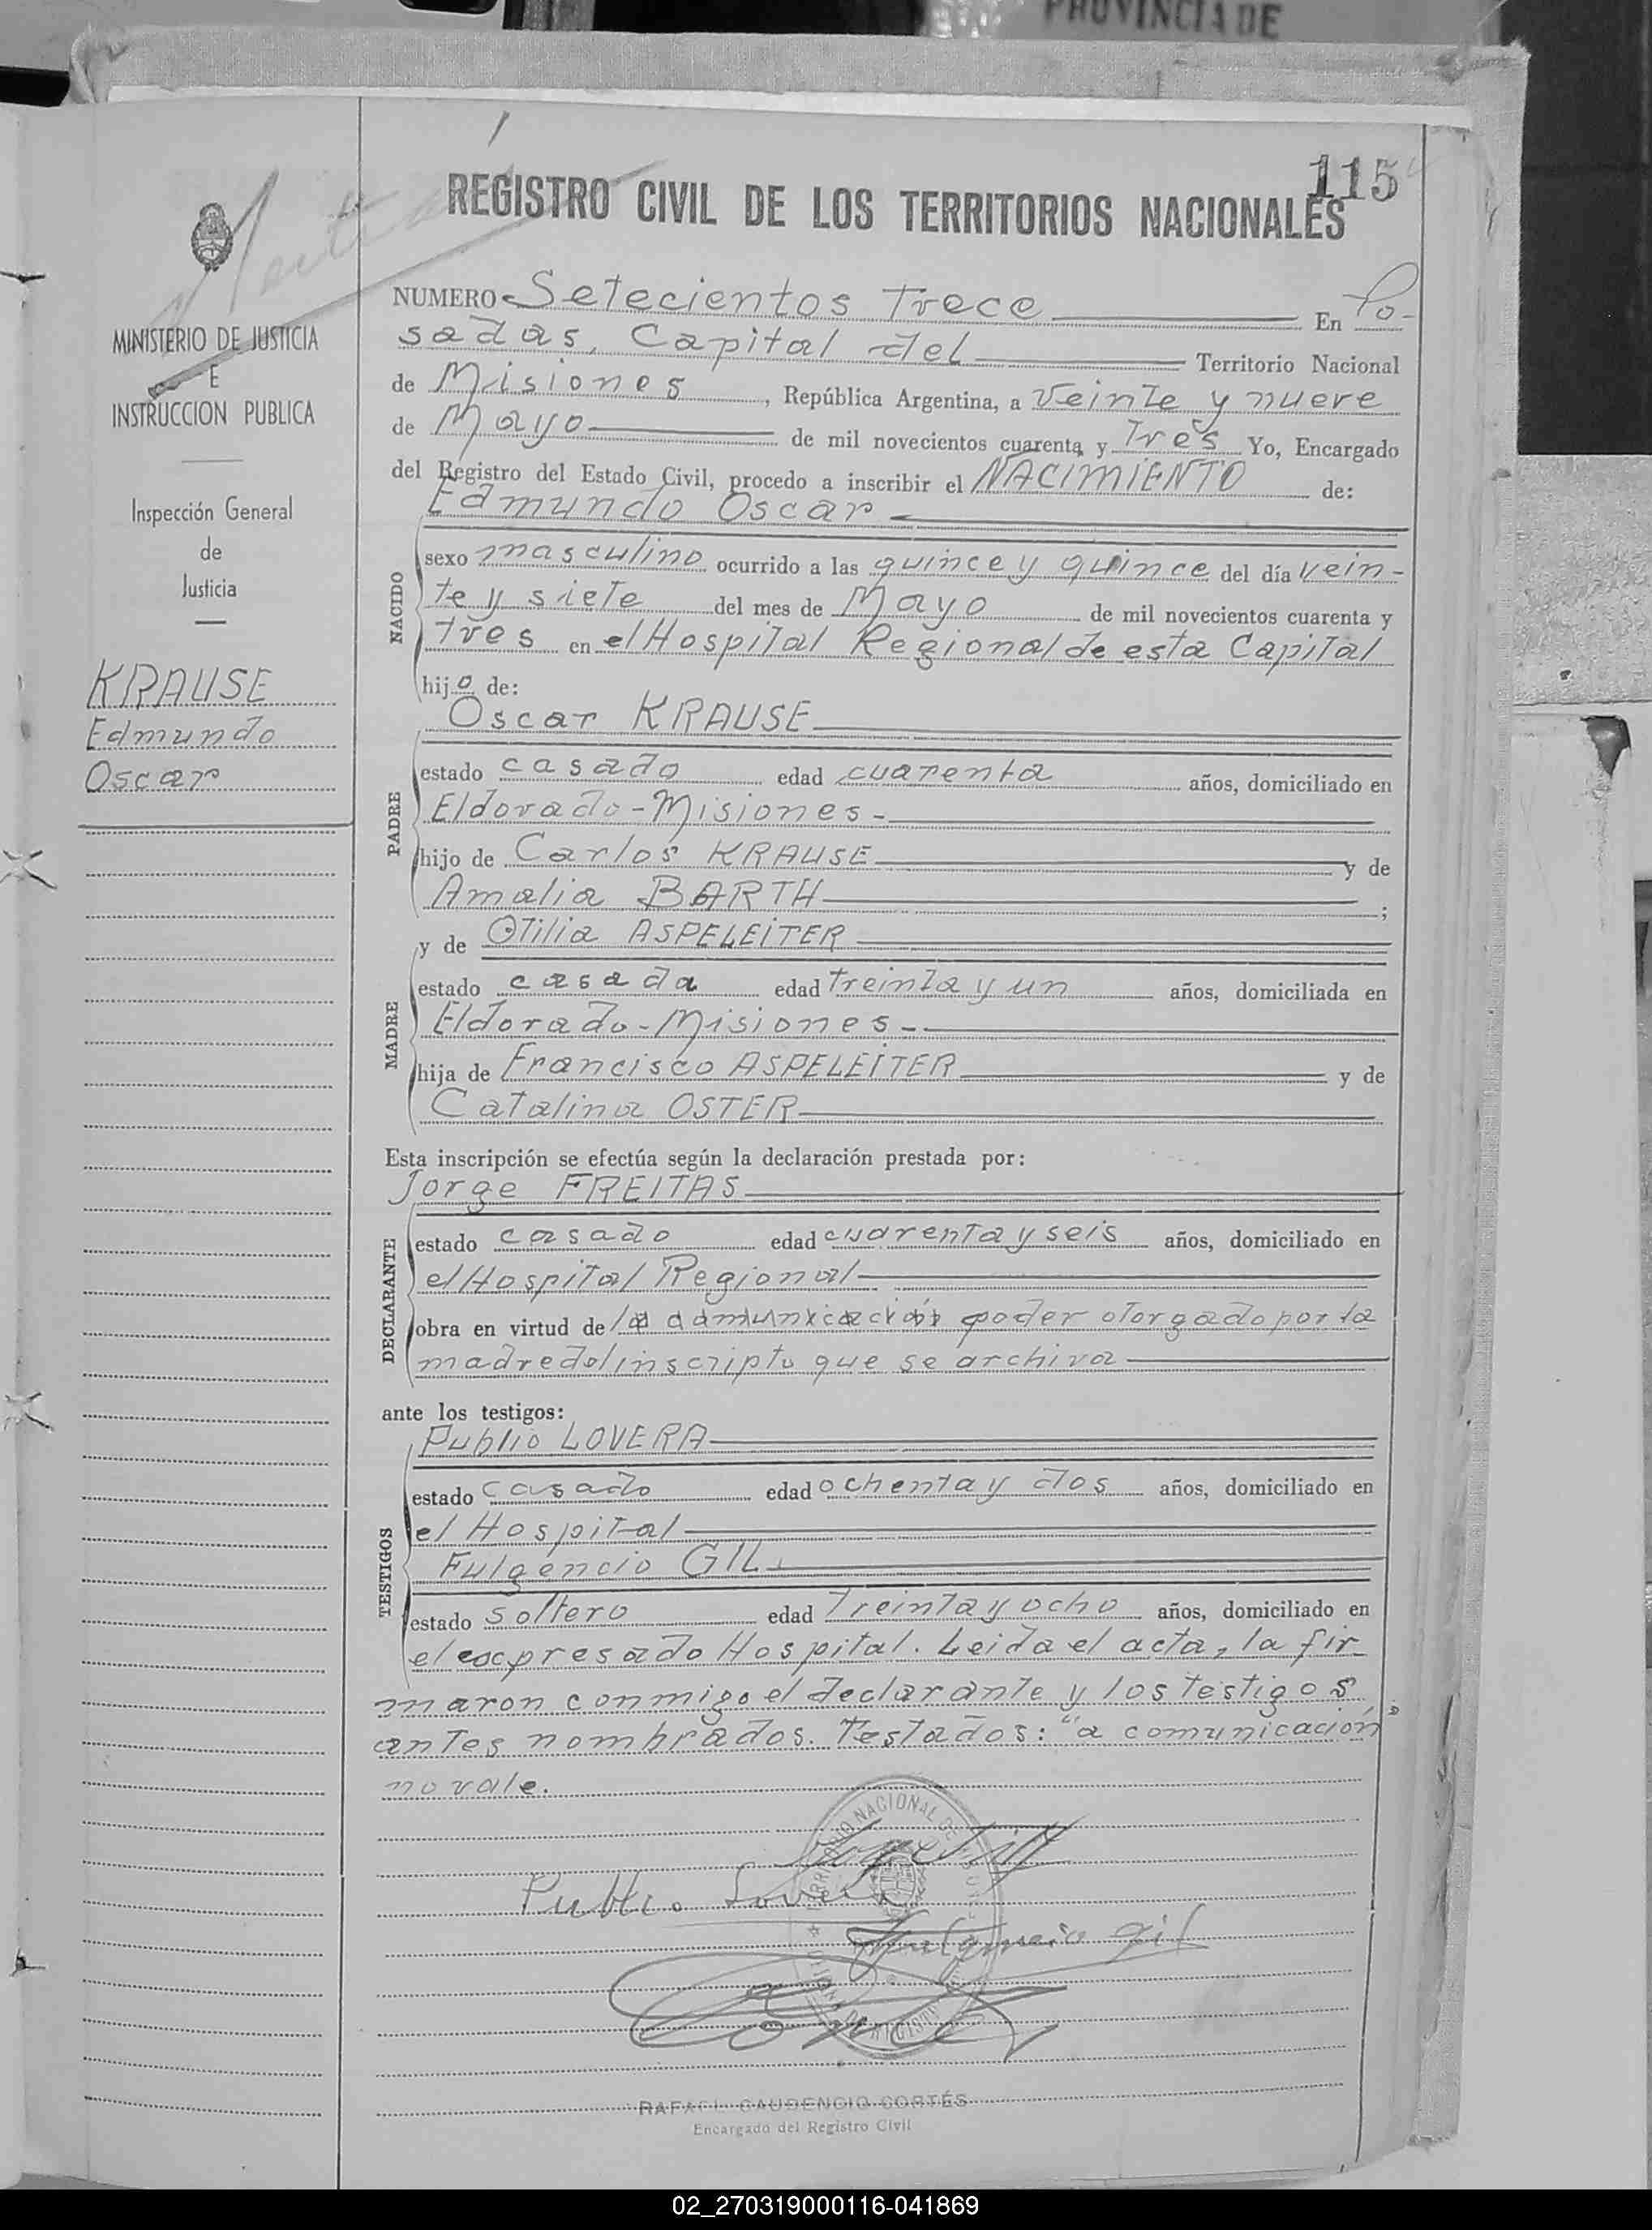 PROVINCIA DE
115
REGISTRO CIVIL DE LOS TERRITORIOS NACIONALES
MINISTERIO DE JUSTICIA
E
INSTRUCCION PUBLICA
Inspección General
de
Justicia
KRAUSE
Edmundo
Oscar
NUMERO Setecientos Trece En Po-
sadas, Capital del Territorio Nacional
de Misiones, República Argentina, a veinte y nueve
de Mayo de mil novecientos cuarenta y Tres Yo, Encargado
del Registro del Estado Civil, procedo a inscribir el NACIMIENTO de:
Edmundo Oscar
NACIDO
sexo masculino ocurrido a las quince y quince del día vein-
te y siete del mes de Mayo de mil novecientos cuarenta y
tres en el Hospital Regional de esta Capital
hijo de:
Oscar KRAUSE
PADRE
estado casado edad cuarenta años, domiciliado en
Eldorado-Misiones-
hijo de Carlos KRAUSE y de
Amalia BARTH ;
y de Otilia ASPELEITER
MADRE
estado casada edad treinta y un años, domiciliada en
Eldorado-Misiones-
hija de Francisco ASPELEITER y de
Catalina OSTER
Esta inscripción se efectúa según la declaración prestada por:
Jorge FREITAS
DECLARANTE
estado casado edad cuarenta y seis años, domiciliado en
el Hospital Regional
obra en virtud de poder otorgado por la
madre del inscripto que se archiva
ante los testigos:
Publio LOVERA
TESTIGOS
estado casado edad ochenta y dos años, domiciliado en
el Hospital
Fulgencio GIL
estado soltero edad treinta y ocho años, domiciliado en
el expresado Hospital. Leida el acta, la fir
maron conmigo el declarante y los testigos
antes nombrados. Testados: "a comunicación"
no vale.
Publio Lovera
Fulgencio Gil
RAFAEL GAUDENCIO CORTÉS
Encargado del Registro Civil
02_270319000116-041869